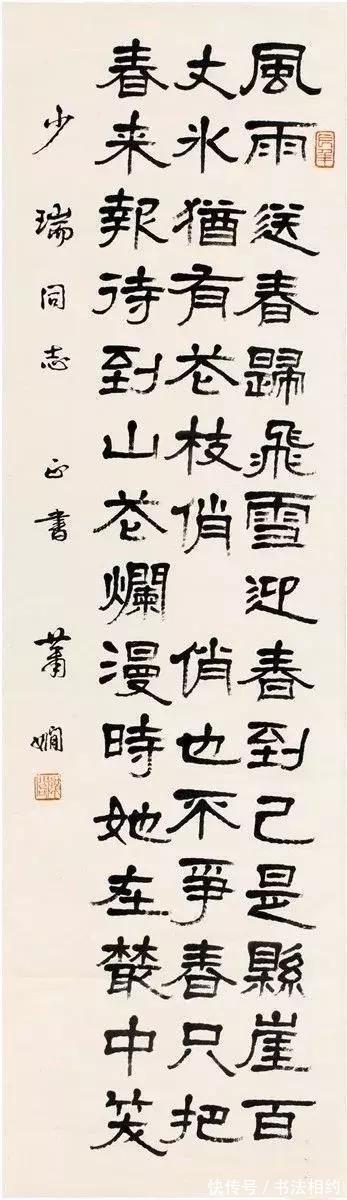 風雨送春歸飛雪迎春到已是縣崖百
丈冰猶有花枝俏 俏也不爭春只把
春来報待到山花爛漫時她在叢中笑
少瑞同志 正書 蕭嫻
快传号 / 书法相约